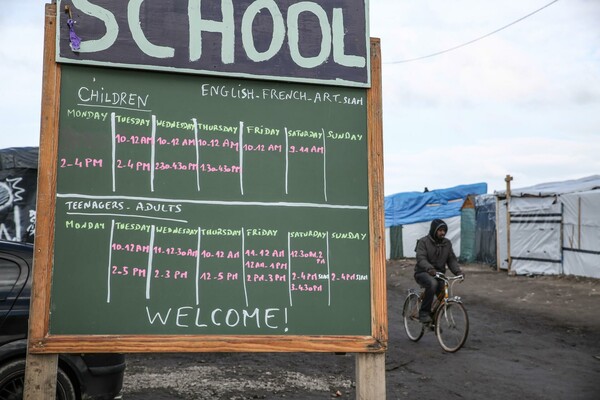 SCHOOL
CHILDREN ENGLISH_FRENCH_ART_SLAM
MONDAY TUESDAY WEDNESDAY THURSDAY FRIDAY SATURDAY SUNDAY
10-12 AM 10-12 AM 10-12 AM 10-12 AM 9-11 AM
2-4 PM 2-4 PM 2.30-4.30 PM 1.30-4.30 PM
TEENAGERS_ADULTS
MONDAY TUESDAY WEDNESDAY THURSDAY FRIDAY SATURDAY SUNDAY
10-12 AM 11-12.30 AM 10-12 AM 11-12 AM 12.30 PM, 2 PM
12 AM-1 PM
2-5 PM 2-3 PM 12-5 PM 2 PM-3 PM 2-4 PM SLAM 2-4 PM SLAM
3-4.30 PM
WELCOME!